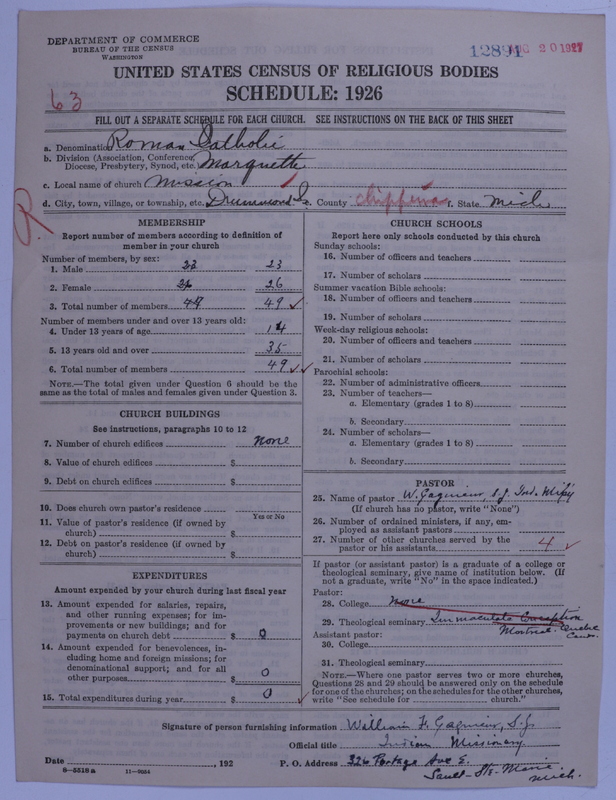 DEPARTMENT OF COMMERCE
BUREAU OF THE CENSUS
WASHINGTON
12891 AUG 20 1927
UNITED STATES CENSUS OF RELIGIOUS BODIES
SCHEDULE: 1926
63
FILL OUT A SEPARATE SCHEDULE FOR EACH CHURCH. SEE INSTRUCTIONS ON THE BACK OF THIS SHEET
a. Denomination Roman Catholic
b. Division (Association, Conference, Diocese, Presbytery, Synod, etc. Marquette
c. Local name of church Mission
d. City, town, village, or township, etc. Drummond Is. e. County Chippewa f. State Mich.
R
MEMBERSHIP
Report number of members according to definition of
member in your church
Number of members, by sex:
1. Male 23 23
2. Female 26 26
3. Total number of members 49 49
Number of members under and over 13 years old:
4. Under 13 years of age 14
5. 13 years old and over 35
6. Total number of members 49
NOTE.—The total given under Question 6 should be the
same as the total of males and females given under Question 3.
CHURCH BUILDINGS
See instructions, paragraphs 10 to 12
7. Number of church edifices none
8. Value of church edifices $
9. Debt on church edifices $
10. Does church own pastor's residence
Yes or No
11. Value of pastor's residence (if owned by
church) $
12. Debt on pastor's residence (if owned by
church) $
EXPENDITURES
Amount expended by your church during last fiscal year
13. Amount expended for salaries, repairs,
and other running expenses; for im-
provements or new buildings; and for
payments on church debt $ 0
14. Amount expended for benevolences, in-
cluding home and foreign missions; for
denominational support; and for all
other purposes $ 0
15. Total expenditures during year $ 0
CHURCH SCHOOLS
Report here only schools conducted by this church
Sunday schools:
16. Number of officers and teachers
17. Number of scholars
Summer vacation Bible schools:
18. Number of officers and teachers
19. Number of scholars
Week-day religious schools:
20. Number of officers and teachers
21. Number of scholars
Parochial schools:
22. Number of administrative officers
23. Number of teachers—
a. Elementary (grades 1 to 8)
b. Secondary
24. Number of scholars—
a. Elementary (grades 1 to 8)
b. Secondary
PASTOR
25. Name of pastor W. Gagnieur, S.J. Ind. Missy
(If church has no pastor, write "None")
26. Number of ordained ministers, if any, em-
ployed as assistant pastors
27. Number of other churches served by the
pastor or his assistants 4
If pastor (or assistant pastor) is a graduate of a college or
theological seminary, give name of institution below. (If
not a graduate, write "No" in the space indicated.)
Pastor:
28. College None
29. Theological seminary Immaculate Conception
Montreal Quebec
Assistant pastor: Can.
30. College
31. Theological seminary
NOTE.—Where one pastor serves two or more churches,
Questions 28 and 29 should be answered only on the schedule
for one of the churches; on the schedules for the other churches,
write "See schedule for church."
Signature of person furnishing information William F. Gagnieur, S.J.
Official title Indian Missionary
Date , 192 P. O. Address 326 Portage Ave E.
Sault-Ste-Marie
Mich.
8—5518 a 11—9054